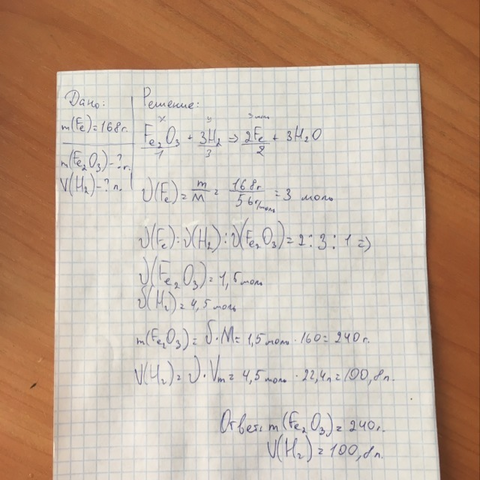 Дано:
m(Fe)=168г.
m(Fe2O3)-?г.
V(H2)-?л.
Решение:
x y 3моль
Fe2O3 + 3H2 => 2Fe + 3H2O
1 3 2
ν(Fe)=m/M=168г/56г/моль=3 моль
ν(Fe):ν(H2):ν(Fe2O3)=2:3:1=>
ν(Fe2O3)=1,5моль
ν(H2)=4,5моль
m(Fe2O3)=ν·M=1,5моль·160=240г.
V(H2)=ν·Vm=4,5моль·22,4л=100,8л.
Ответ: m(Fe2O3)=240г.
V(H2)=100,8л.